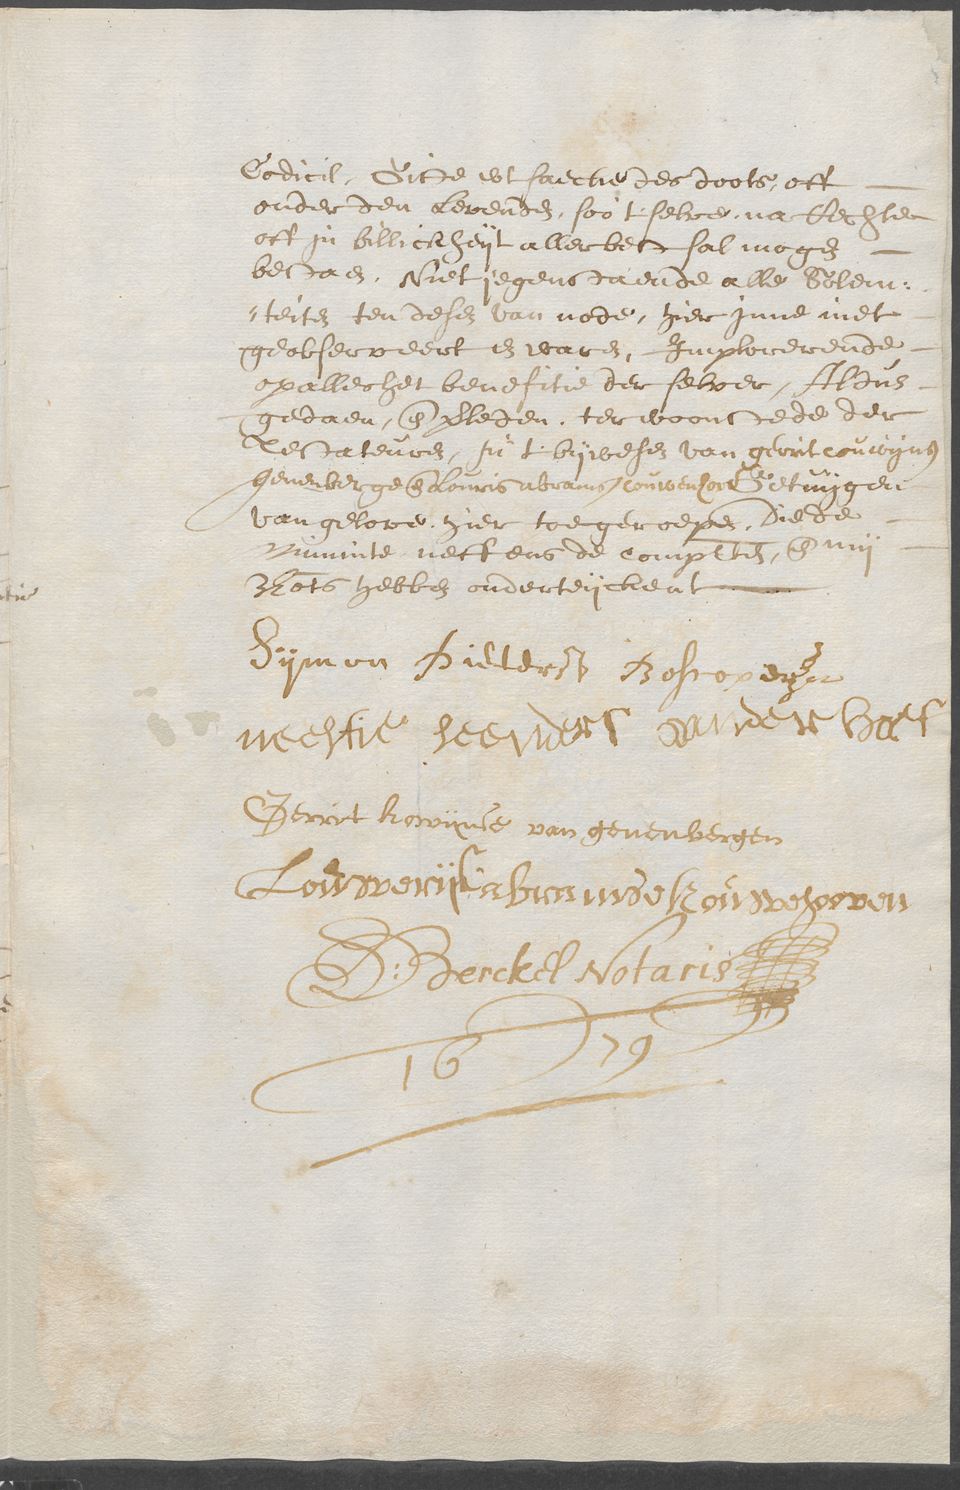 Codicil, Gifte ut saecke des doots, oft
onder den Levende, soo 't selve na Rechte
oft in billickheijt allerbest sal moge
bestaen. Niet jegenstaende alle Solem:
niteite ten dese van node, hier inne niet
geobserveert en ware, Imploreerende
op alles het benefitie der selver, Aldus
gedaen, en Passeden. ter woonstede der
Testateure, in 't bijwese van gerrit couwijns
genenberge en Louris abrams couwenhove Getuijgen
van gelove hier toe geroepen, die de
minute neffens de Complte, en mij
Nots hebbe onderteijckent
Sijmon Pieters
neeltie heenders vander
Gerrit kowijnse van genenbergen
Louwerijs abramse kouwehooven
D: Berckel Notaris
1679